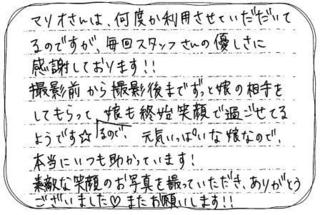 マリオさんは、何度か利用させていただいて
るのですが、毎回スタッフさんの優しさに
感謝しております!!
撮影前から撮影後までずっと娘の相手を
してもらって、娘も終始笑顔で過ごせてる
ようです☆るので、元気いっぱいな娘なので、
本当にいつも助かっています!
素敵な笑顔のお写真を撮っていただき、ありがとう
ございました♡またお願いします!!